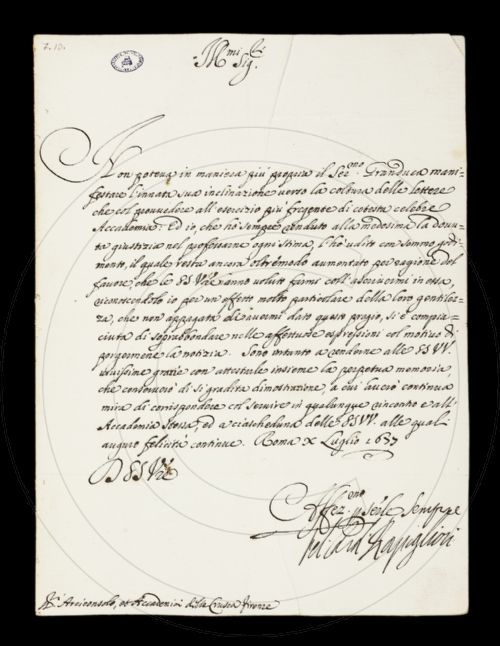 7. 10.
Ill.mi Sig.ri
Non poteua in maniera più propria il Ser.mo Granduca mani=
festare l'innata sua inclinazione uerso la coltura delle lettere
che col prouuedere all'esercizio più frequente di cotesta celebre
Accademia. Ed io, che hò sempre renduto alla medesima la douu=
ta giustizia nel professarne ogni stima, l'hò udito con sommo godi=
mento, il quale resta ancora oltremodo aumentato per cagione del
fauore, che le SS VV.re uanno uoluto farmi coll'ascriuermi in essa,
riconoscendolo io per un effetto molto particolare della loro gentilez=
za, che non appagata di auermi dato questo pregio, si è compia=
ciuta di soprabbondare nelle affettuose espressioni col motiuo di
porgermene la notizia. Sono intanto a renderne alle SS VV.
uiuissime grazie con attestarle insieme la perpetua memoria,
che conseruerò di sì gradita dimostrazione, a cui aurò continua
mira di corrispondere col seruire in qualunque rincontro e all'
Accademia stessa, ed a ciascheduna delle SS VV. alle quali
auguro felicità continue. Roma X Luglio 1697
D SS VV.re
Affez.mo per seruirle sempre
SS.ri Arciconsolo, et Accademici della Crusca Firenze